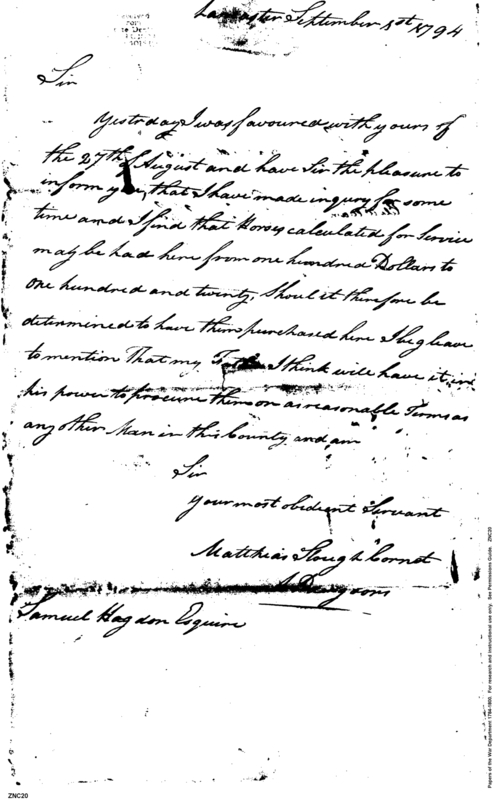 Lancaster September 1st 1794
Sir
Yestrday I was favoured with yours of
the 27th of August and have Sir the pleasure to
inform you, that I have made inqury for some
time and I find that Horses calculated for Service
may be had here from one hundred Dollars to
one hundred and twenty, Shoul it therefore be
determined to have them purchased here I beg leave
to mention That my I think will have it in
his power to procure them on as reasonable Terms as
any other Man in this County and am
Sir
your most obedient Servant
Matthias Slough Cornet
Dragoons
Samuel Hogdon Esquire
Papers of the War Department 1784-1800. For research and instructional use only. See Permissions Guide. ZNC20
ZNC20